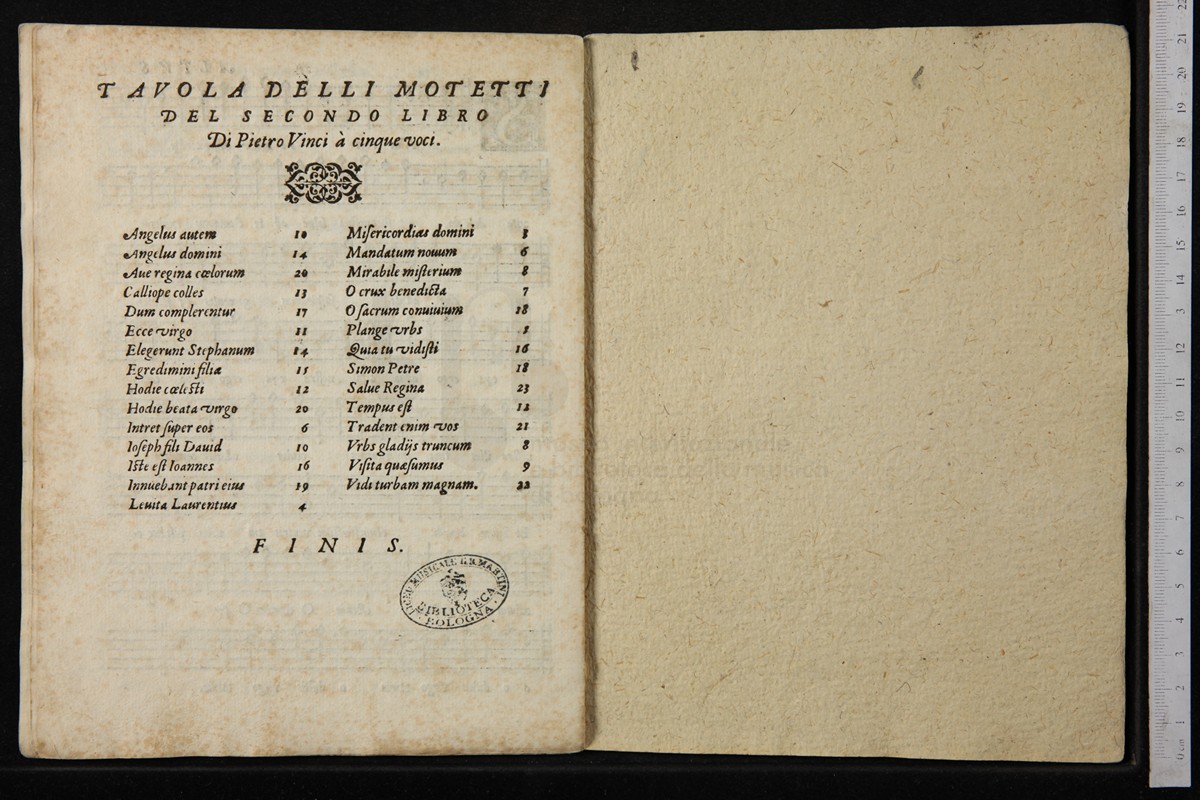 TAVOLA DELLI MOTETTI
DEL SECONDO LIBRO
Di Pietro Vinci à cinque voci.
Angelus autem 10
Angelus domini 14
Aue regina cœlorum 20
Calliope colles 13
Dum complerentur 17
Ecce virgo 11
Elegerunt Stephanum 14
Egredimini filia 15
Hodie cœlesti 12
Hodie beata virgo 20
Intret super eos 6
Ioseph fili Dauid 10
Iste est Ioannes 16
Innuebant patri eius 19
Leuita Laurentius 4
Misericordias domini 3
Mandatum nouum 6
Mirabile misterium 8
O crux benedicta 7
O sacrum conuiuium 18
Plange vrbs 1
Quia tu vidisti 16
Simon Petre 18
Salue Regina 23
Tempus est 12
Tradent enim vos 21
Vrbs gladijs truncum 8
Visita quæsumus 9
Vidi turbam magnam. 22
FINIS.
LICEO MUSICALE G.B. MARTINI
BIBLIOTECA
BOLOGNA
22
21
20
19
18
17
16
15
14
13
12
11
10
9
8
7
6
5
4
3
2
1
0 cm